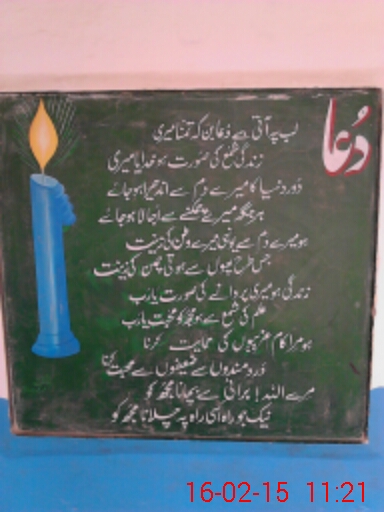 دُعا
لب پہ آتی ہے دعا بن کہ تمنا میری
زندگی شمع کی صورت ہو خدایا میری
دور دنیا کا میرے دم سے اندھیرا ہو جائے
ہر جگہ میرے چمکنے سے اجالا ہو جائے
ہو میرے دم سے یونہی میرے وطن کی زینت
جس طرح پھولوں سے ہوتی چمن کی زینت
زندگی ہو میری پروانے کی صورت یارب
علم کی شمع سے ہو مجھ کو محبت یارب
ہو مرا کام غریبوں کی حمایت کرنا
درد مندوں سے ضعیفوں سے محبت کرنا
مرے اللہ! برائی سے بچانا مجھ کو
نیک جو راہ اسی راہ پہ چلانا مجھ کو
16-02-15 11:21